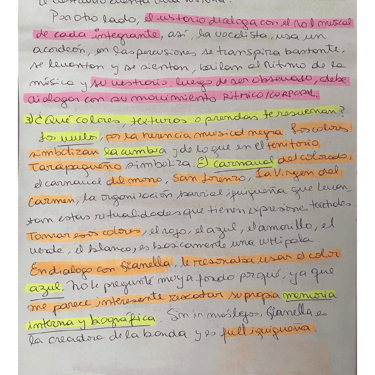 Por otro lado, el vestuario dialoga con el rol musical
de cada integrante, así, la vocalista, usa un
acordeón, en las percusiones se transpira bastante,
se levantan y se sientan, bailan al ritmo de la
música y su vestuario luego de ser observado, debe
dialogar con su movimiento rítmico/corporal
3) ¿Qué colores, texturas o prendas te resuenan?
Los vuelos, por la herencia musical negra. Los colores
simbolizan la cumbia y de lo que en el territorio
Tarapaqueño simboliza. El carnaval del colorado,
el carnaval del morro, San Lorenzo, La Virgen del
Carmen, la organización barrial iquiqueña que levan
tan estas ritualidades que tienen expresiones textiles
Tomar esos colores, el rojo, el azul, el amarillo, el
verde, el blanco, es básicamente una whipala
En dialogo con Gianella, le resonaba usar el color
azul. No le pregunté muy a fondo por qué, ya que
me parece interesante rescatar su propia memoria
interna y biográfica. Sin ir más lejos, Gianella es
la creadora de la banda y es full iquiqueña